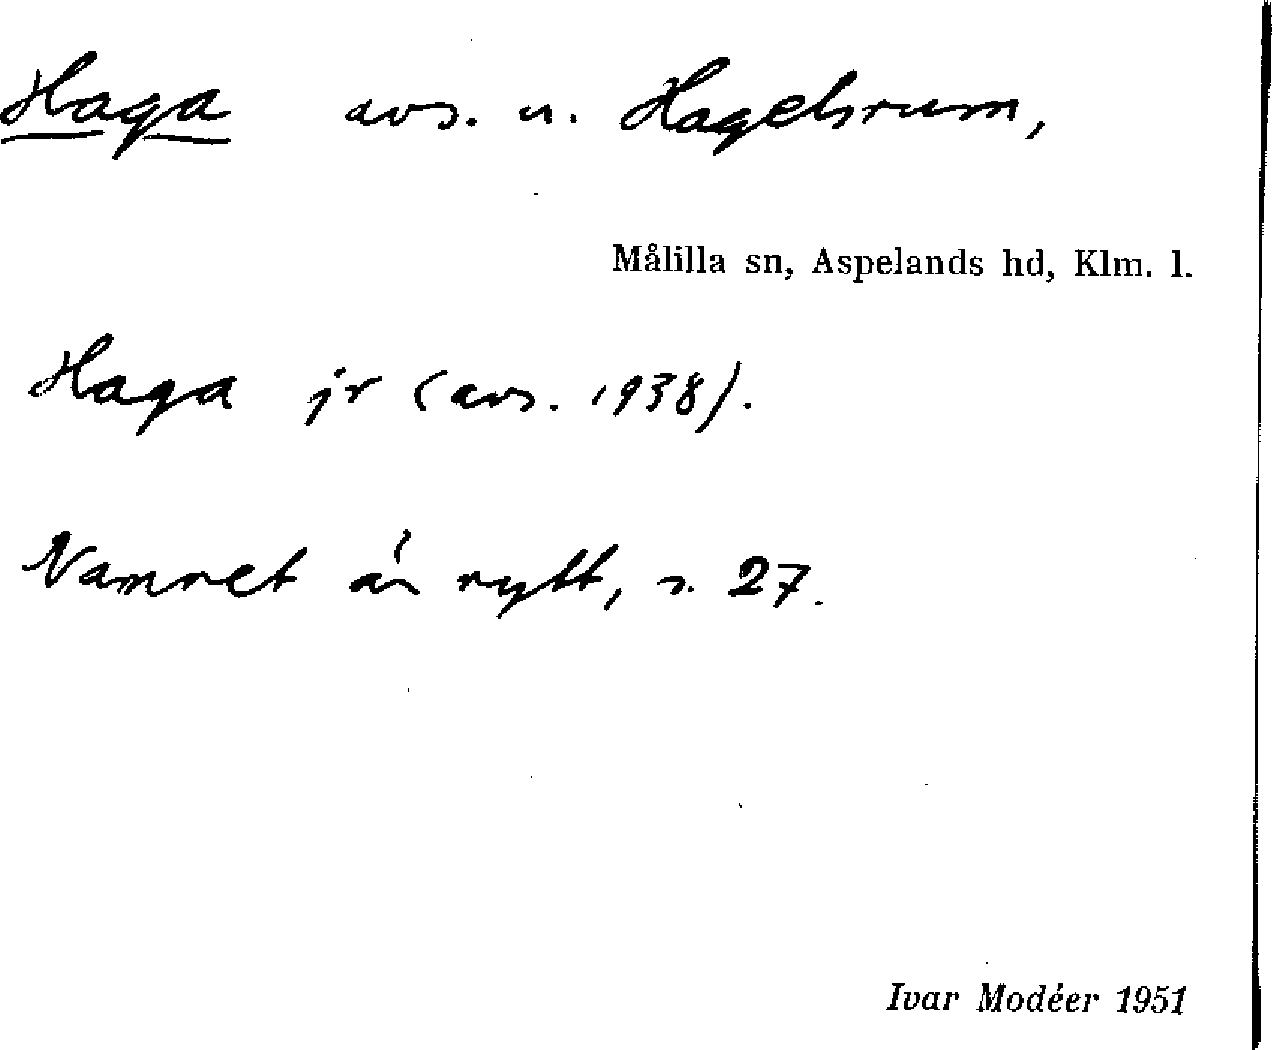 Haga avs. u. Hagelsrum,
Målilla sn, Aspelands hd, Klm. l.
Haga jr (avs. 1938).
Namnet är nytt, s. 27.
Ivar Modéer 1951